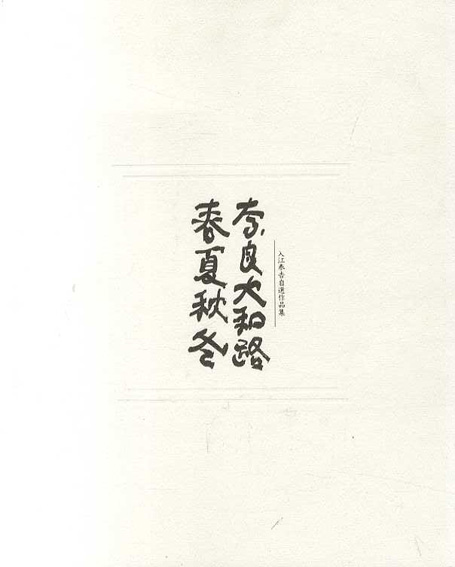 入江泰吉自選作品集
奈良大和路
春夏秋冬